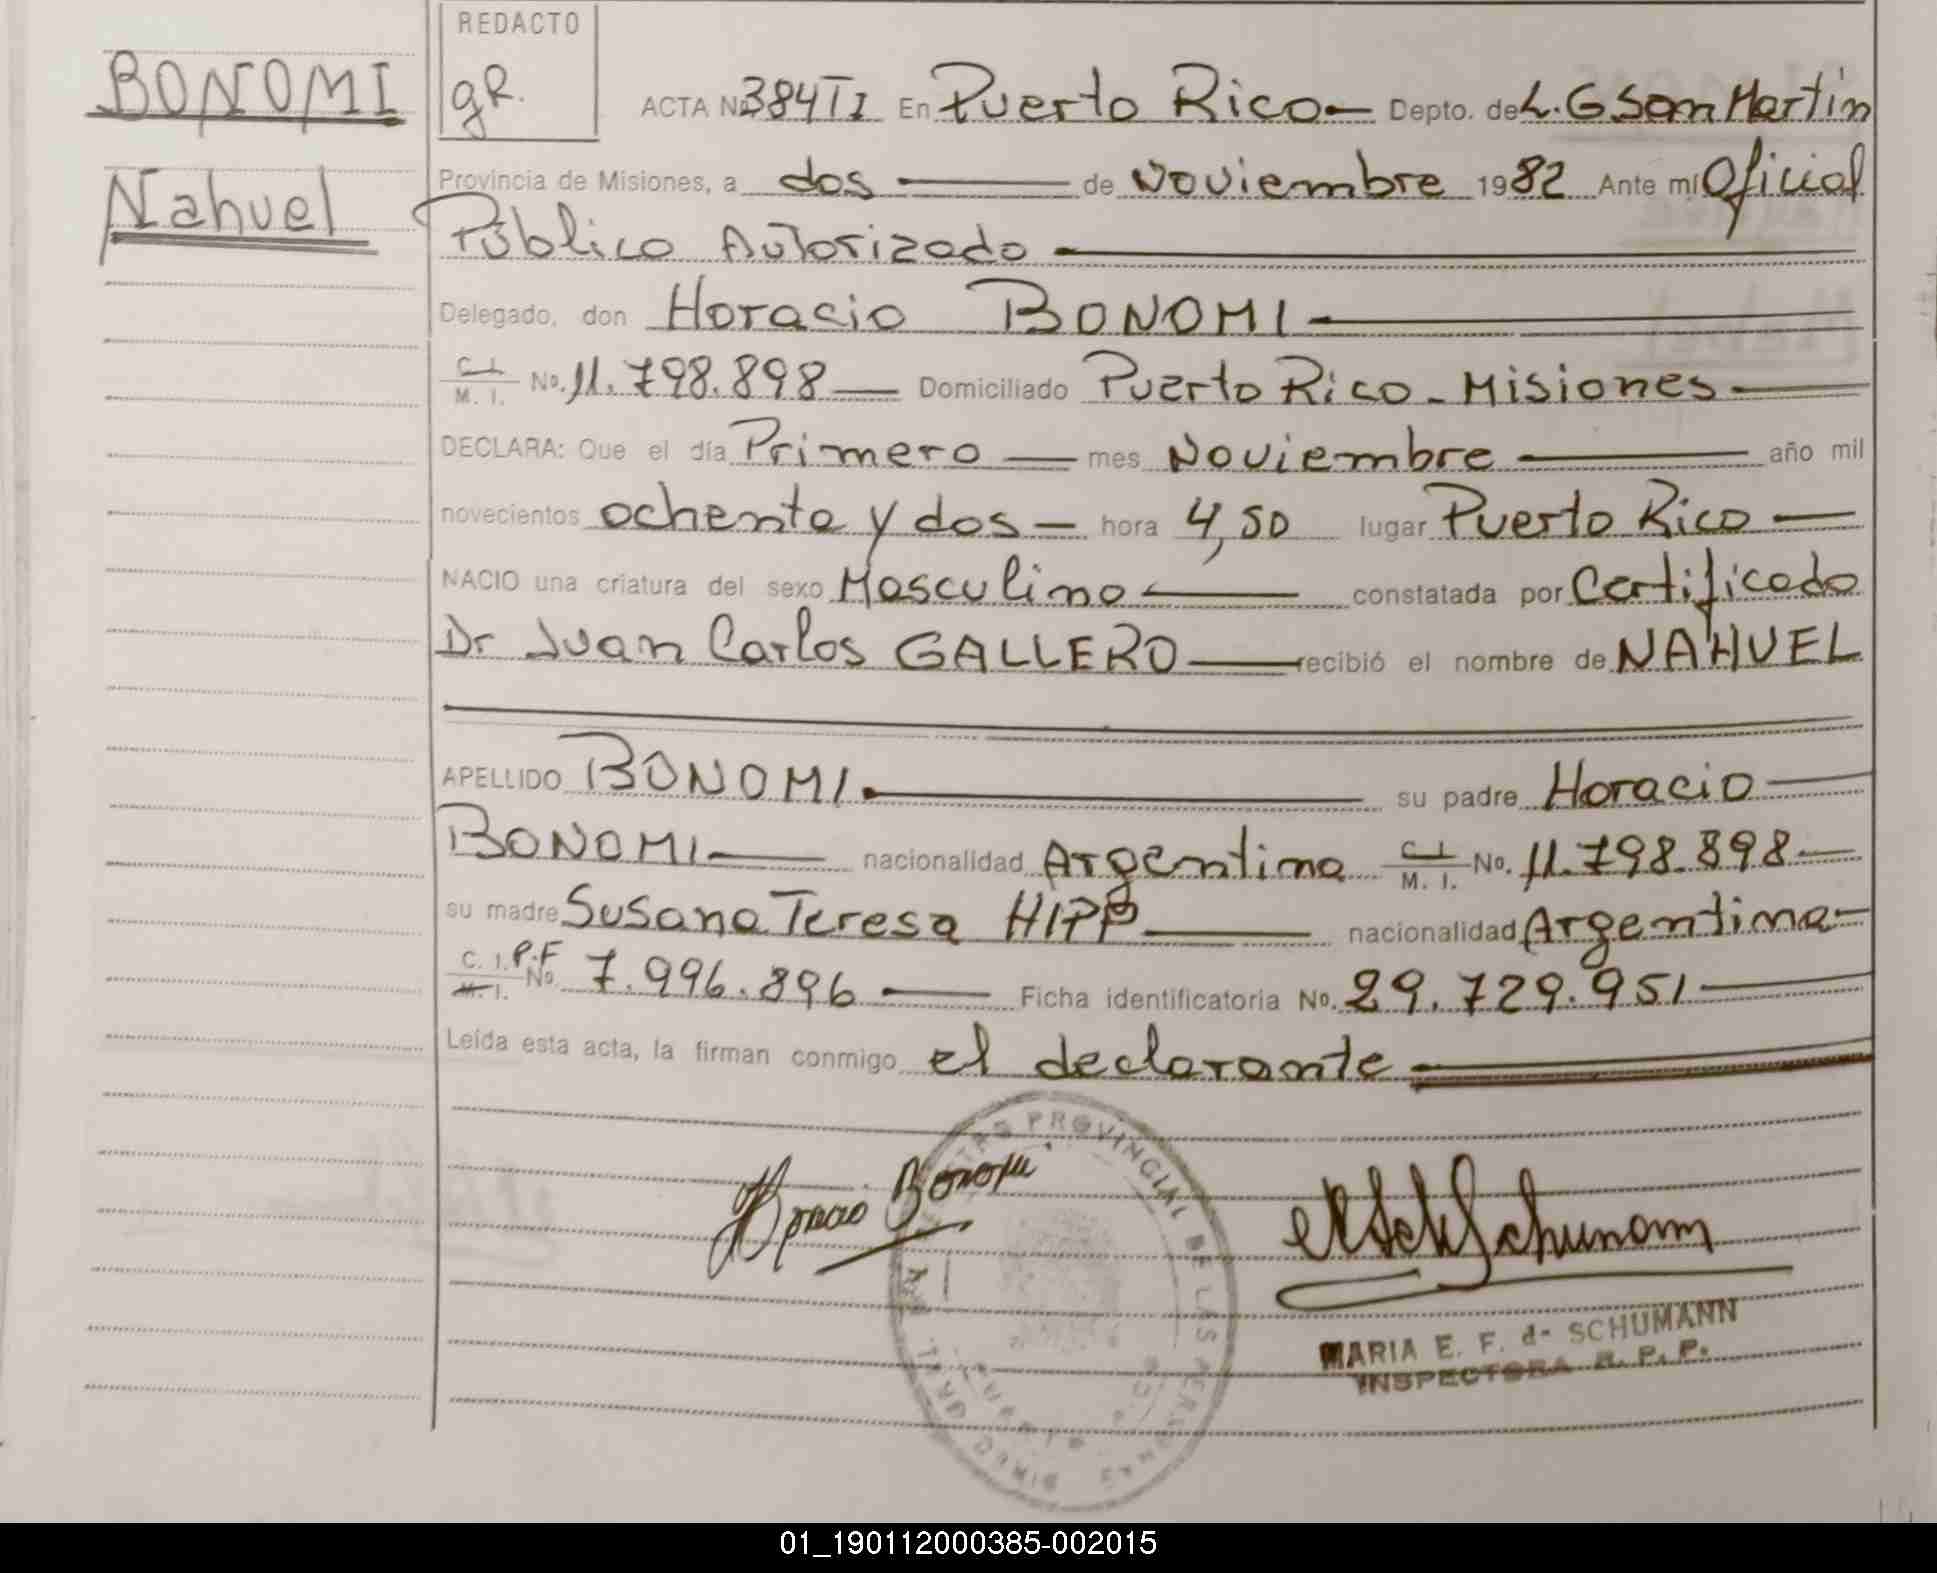 BONOMI
Nahuel
REDACTO
gR.
ACTA No 384 T1 En Puerto Rico — Depto. de L. G San Martin
Provincia de Misiones, a dos — de Noviembre 1982 Ante mí Oficial
Público Autorizado —
Delegado, don Horacio BONOMI —
C. I. M. I. No. 11.798.898 — Domiciliado Puerto Rico - Misiones —
DECLARA: Que el día Primero — mes Noviembre — año mil
novecientos ochenta y dos — hora 4,50 lugar Puerto Rico —
NACIO una criatura del sexo Masculino — constatada por Certificado
Dr Juan Carlos GALLERO — recibió el nombre de NAHUEL
APELLIDO BONOMI — su padre Horacio —
BONOMI — nacionalidad Argentina C. I. M. I. No. 11.798.898 —
su madre Susana Teresa HIPP — nacionalidad Argentina —
C. I. P.F M. I. No. 7.996.896 — Ficha identificatoria No. 29.729.951 —
Leída esta acta, la firman conmigo el declarante —
Horacio Bonomi
Schumann
PROVINCIAL DE LAS PERSONAS
MARIA E. F. de SCHUMANN
INSPECTORA R. P. P.
01_190112000385-002015